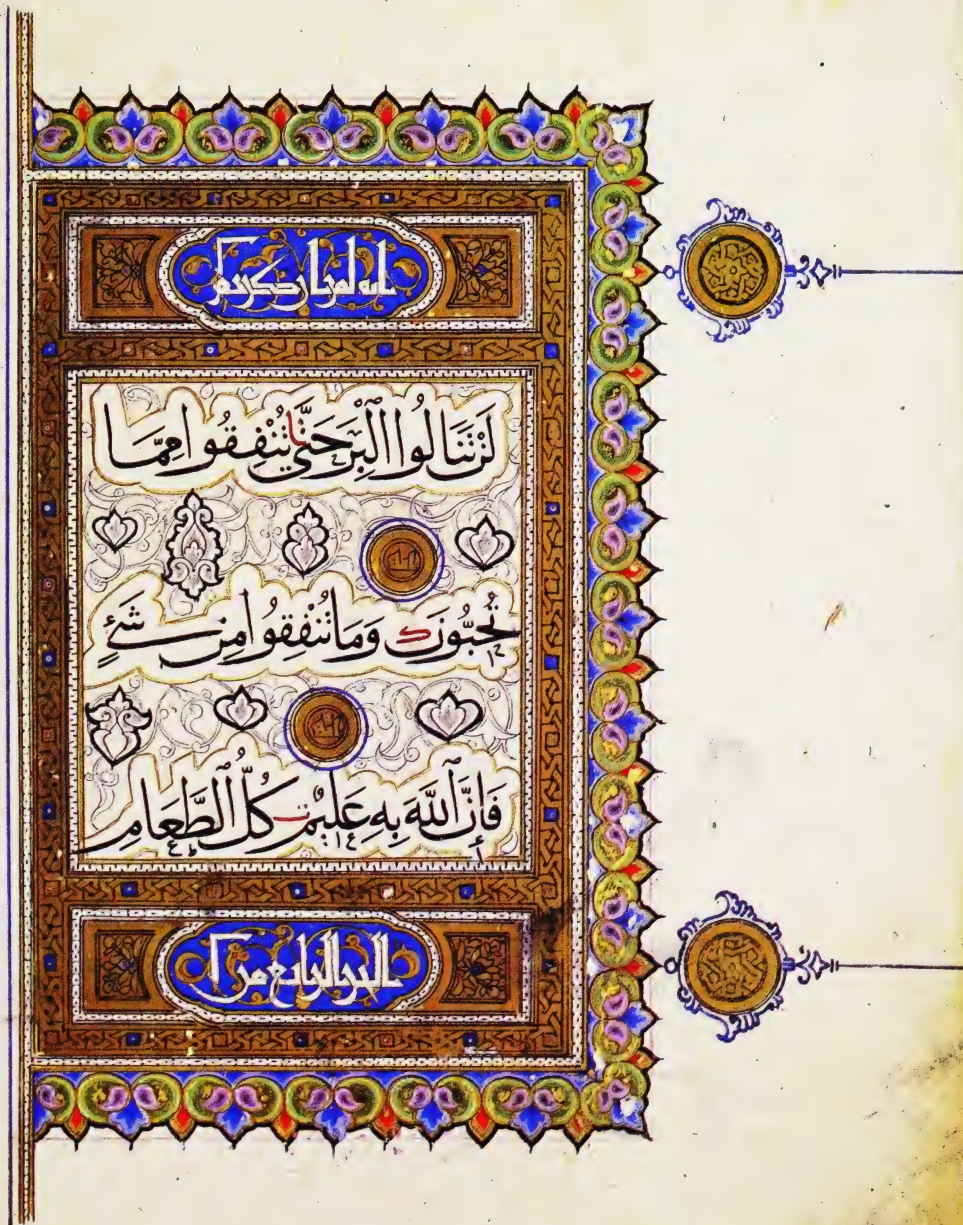 انه لقرآن كريم
لَنْ تَنَالُوا الْبِرَّ حَتَّىٰ تُنْفِقُوا مِمَّا
تُحِبُّونَ وَمَا تُنْفِقُوا مِنْ شَيْءٍ
فَإِنَّ اللَّهَ بِهِ عَلِيمٌ كُلُّ الطَّعَامِ
الجزء الرابع من